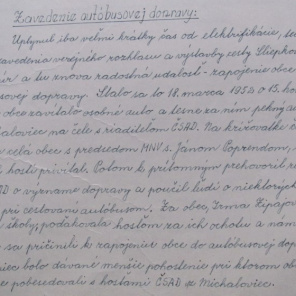 Zavedenie autóbusovej dopravy:
Uplynul iba veľmi krátky čas od elektrifikácie,
zavedenia verejného rozhlasu a výstavby cesty Sliepkov
a tu znova radostná udalosť - zapojenie obce
sovej dopravy. Stalo sa to 18. marca 1956 o 13. ho
obce zavítalo osobné auto a tesne za ním pekný au
haloviec na čele s riaditeľom ČSAD. Na križovatke
celá obec s predsedom MNV s. Jánom Poprendom,
hostí privítal. Potom k prítomným prehovoril
o význame dopravy a poučil ľudí o niektorých
pri cestovaní autóbusom. Za obec, Irma Zipajov
školy, poďakovala hosťom za ich ochotu a nám
sa pričinili k zapojeniu obce do autóbusovej dop
bolo dávané menšie pohostenie pri ktorom ob
pobesedovali s hosťami ČSAD z Michaloviec.